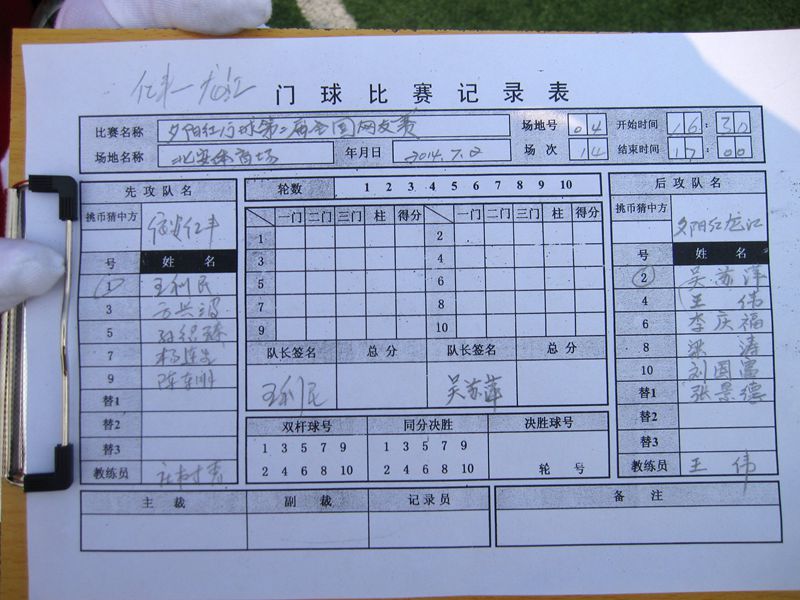 亿丰—龙江 门球比赛记录表
比赛名称 夕阳红门球第二届全国网友赛 场地号 04 开始时间 16:30
场地名称 年月日 2014.7.2 场次 14 结束时间 17:00
先攻队名 轮数 1 2 3 4 5 6 7 8 9 10 后攻队名
挑币猜中方 宿迁亿丰 一门 二门 三门 柱 得分 一门 二门 三门 柱 得分 挑币猜中方 夕阳红龙江
号 姓名 1 2 号 姓名
1 王利民 3 4 2 吴苏萍
3 方兴鸿 5 6 4 王伟
5 7 8 6 李庆福
7 9 10 8 梁涛
9 陈东洲 队长签名 总分 队长签名 总分 10 刘国富
替1 王利民 吴苏萍 替1 张景德
替2 双杆球号 同分决胜 决胜球号 替2
替3 1 3 5 7 9 1 3 5 7 9 替3
教练员 2 4 6 8 10 2 4 6 8 10 轮 号 教练员 王伟
主裁 副裁 记录员 备注